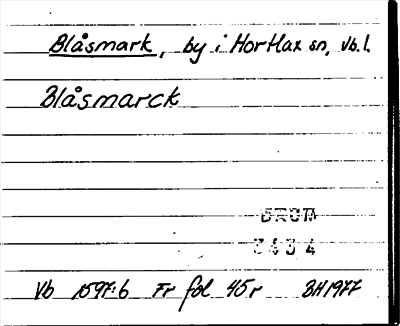 Blåsmark, by i Hortlax sn, Vb.l.
Blåsmarck
3434
Vb 1597:6 Fr fol 45r BH1977